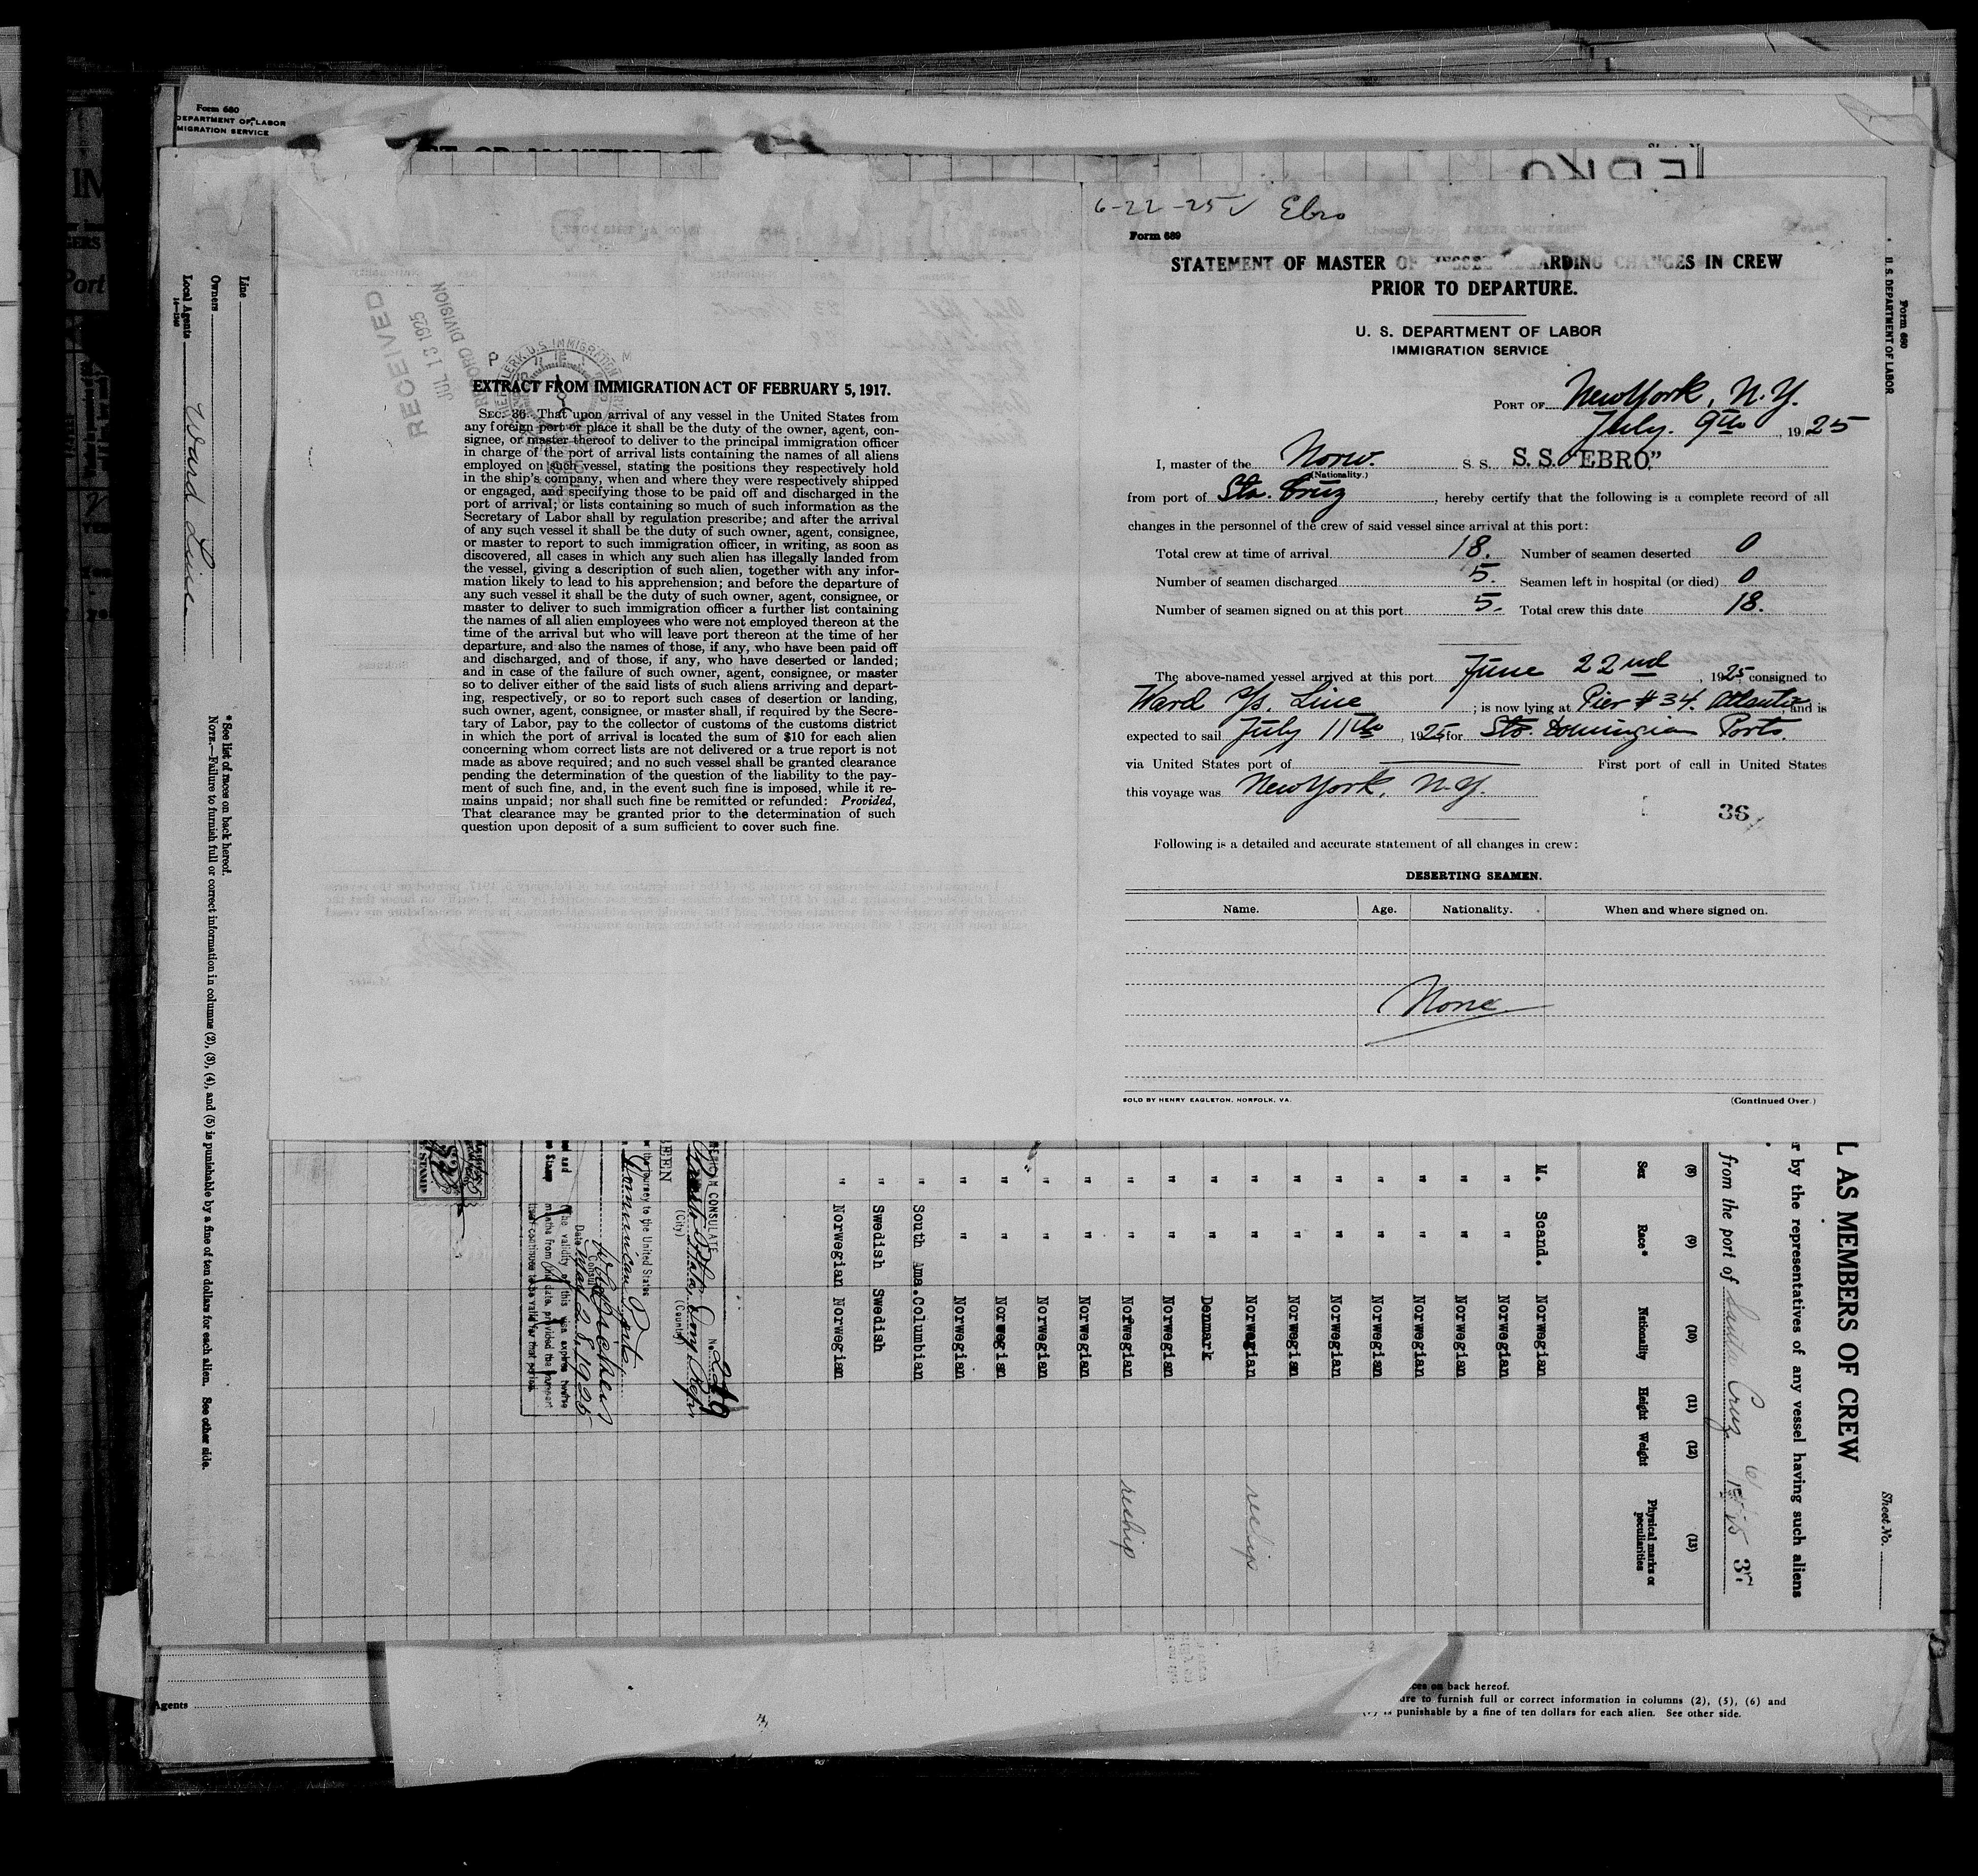 Form 680
DEPARTMENT OF LABOR
MIGRATION SERVICE
Line
Owners
Local Agents Ward Line
14—1240
* See list of races on back hereof.
NOTE.—Failure to furnish full or correct information in columns (2), (3), (4), and (5) is punishable by a fine of ten dollars for each alien. See other side.
RECEIVED
JUL 13 1925
EXTRACT FROM IMMIGRATION ACT OF FEBRUARY 5, 1917.
SEC. 36. That upon arrival of any vessel in the United States from
any foreign port or place it shall be the duty of the owner, agent, con-
signee, or master thereof to deliver to the principal immigration officer
in charge of the port of arrival lists containing the names of all aliens
employed on such vessel, stating the positions they respectively hold
in the ship's company, when and where they were respectively shipped
or engaged, and specifying those to be paid off and discharged in the
port of arrival; or lists containing so much of such information as the
Secretary of Labor shall by regulation prescribe; and after the arrival
of any such vessel it shall be the duty of such owner, agent, consignee,
or master to report to such immigration officer, in writing, as soon as
discovered, all cases in which any such alien has illegally landed from
the vessel, giving a description of such alien, together with any infor-
mation likely to lead to his apprehension; and before the departure of
any such vessel it shall be the duty of such owner, agent, consignee, or
master to deliver to such immigration officer a further list containing
the names of all alien employees who were not employed thereon at the
time of the arrival but who will leave port thereon at the time of her
departure, and also the names of those, if any, who have been paid off
and discharged, and of those, if any, who have deserted or landed;
and in case of the failure of such owner, agent, consignee, or master
so to deliver either of the said lists of such aliens arriving and depart-
ing, respectively, or so to report such cases of desertion or landing,
such owner, agent, consignee, or master shall, if required by the Secre-
tary of Labor, pay to the collector of customs of the customs district
in which the port of arrival is located the sum of $10 for each alien
concerning whom correct lists are not delivered or a true report is not
made as above required; and no such vessel shall be granted clearance
pending the determination of the question of the liability to the pay-
ment of such fine, and, in the event such fine is imposed, while it re-
mains unpaid; nor shall such fine be remitted or refunded: Provided,
That clearance may be granted prior to the determination of such
question upon deposit of a sum sufficient to cover such fine.
6-22-25 ✓ Ebro
Form 689
STATEMENT OF MASTER OF VESSEL REGARDING CHANGES IN CREW
PRIOR TO DEPARTURE.
U. S. DEPARTMENT OF LABOR
IMMIGRATION SERVICE
PORT OF New York, N.Y.
July. 9th, 1925
I, master of the Norw. S. S. S. S. "EBRO"
(Nationality.)
from port of Sta. Cruz, hereby certify that the following is a complete record of all
changes in the personnel of the crew of said vessel since arrival at this port:
Total crew at time of arrival 18. Number of seamen deserted 0
Number of seamen discharged 5. Seamen left in hospital (or died) 0
Number of seamen signed on at this port 5. Total crew this date 18.
The above-named vessel arrived at this port June 22nd, 1925, consigned to
Ward S/s. Line; is now lying at Pier # 34. Atlantic, and is
expected to sail July 11th, 1925 for Sto. Domingian Ports.
via United States port of —— First port of call in United States
this voyage was New York, N.Y.
36
Following is a detailed and accurate statement of all changes in crew:
DESERTING SEAMEN.
Name. Age. Nationality. When and where signed on.
None
SOLD BY HENRY EAGLETON, NORFOLK, VA.
(Continued Over.)
Form 680
U. S. DEPARTMENT OF LABOR
L AS MEMBERS OF CREW
Sheet No.
r by the representatives of any vessel having such aliens
from the port of Santa Cruz
(8) (9) (10) (11) (12) (13)
Sex Race* Nationality Height Weight Physical marks or peculiarities
M. Scand. Norwegian
" " Norwegian
" " Norwegian
" " Norwegian
" " Norwegian
" " Norwegian
" " Norwegian
" " Norwegian reship
" " Denmark
" " Norwegian
" " Norwegian reship
" " Norwegian
" " Norwegian
" " Norwegian
" " Norwegian
" South Ama. Columbian
" Swedish Swedish
" Norwegian Norwegian
CONSULATE
(City) (Country)
SEEN
the journey to the United States
Dominican Ports
Consul
Date
The validity of this visa expires twelve
months from this date, provided the passport
itself continues to be valid for that period.
STAMP
Agents
ces on back hereof.
ure to furnish full or correct information in columns (2), (5), (6) and
(7) is punishable by a fine of ten dollars for each alien. See other side.